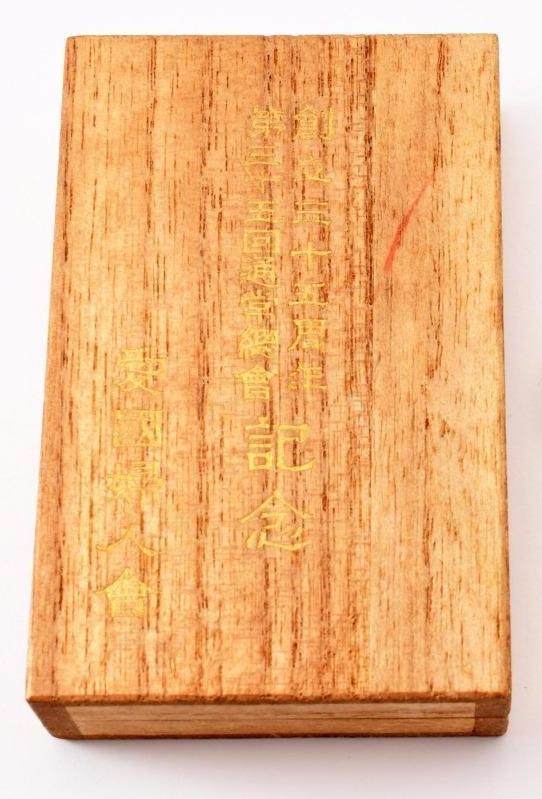 創立三十五周年
第三十五回通常總會
記念
愛國婦人會